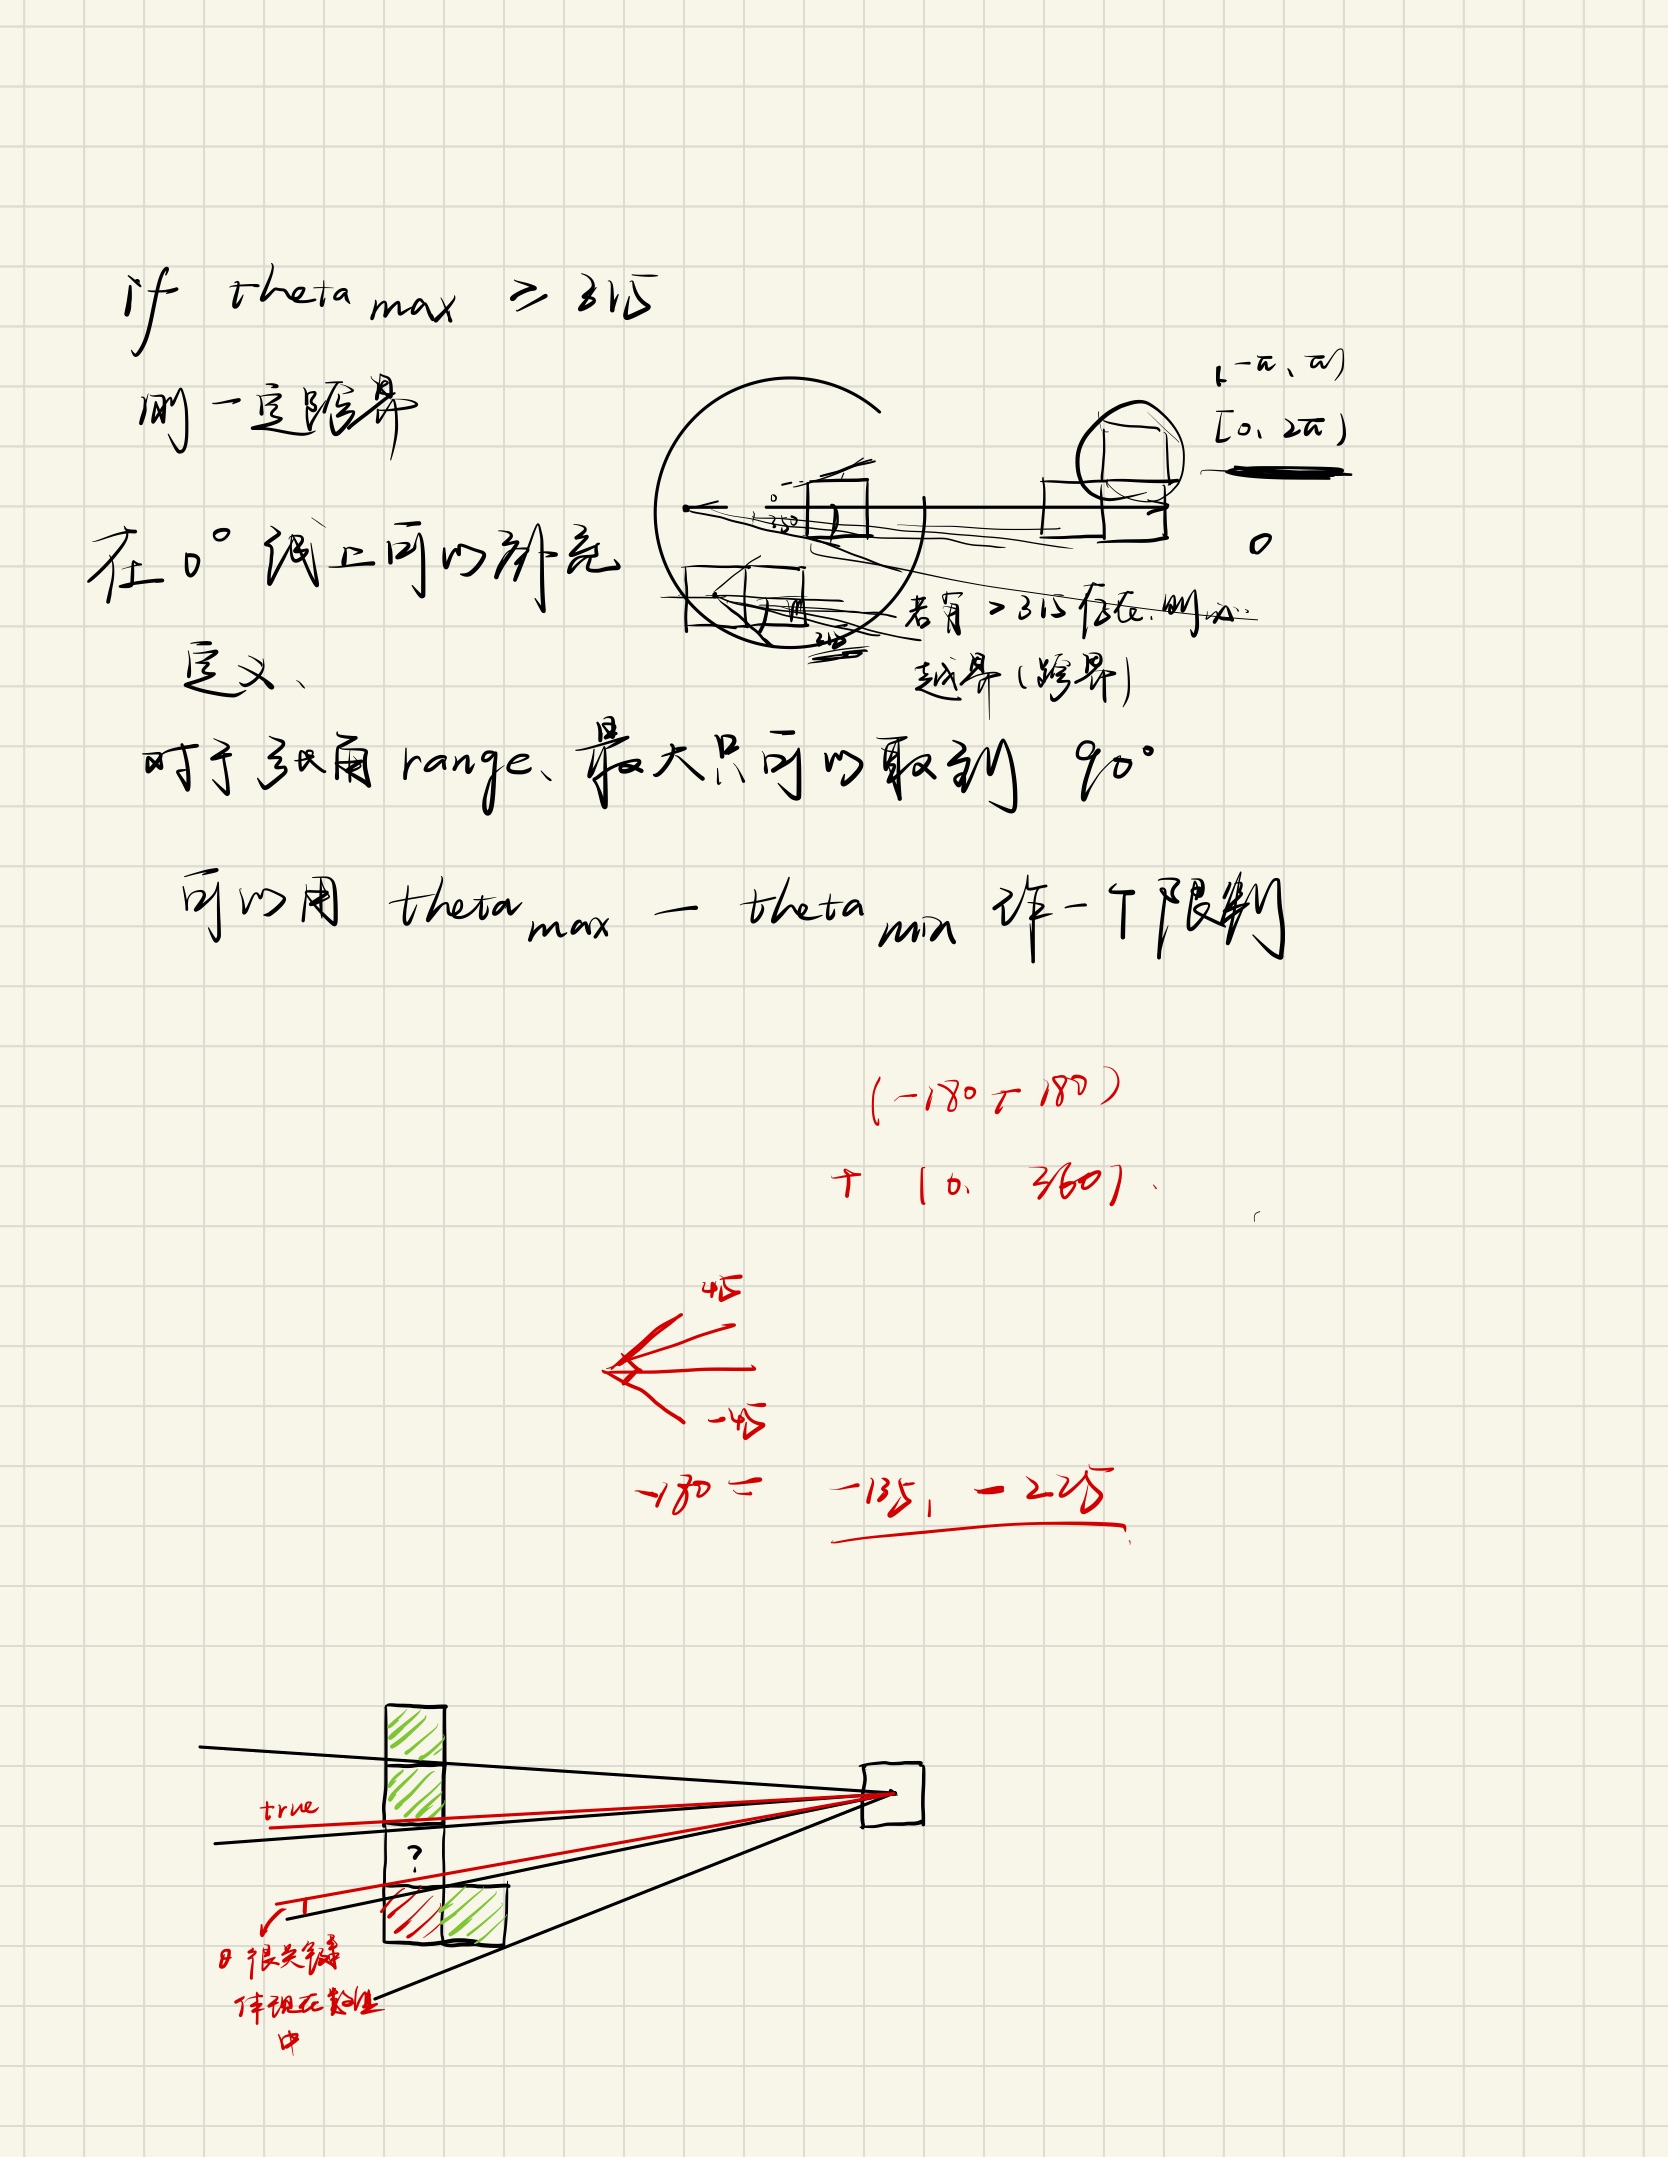 if theta max ≥ 315
则一定跨界
(-π、π)
[0、2π)
0
350
0
在 0° 线上可以补充
定义、
315
若有 > 315 存在、则
越界(跨界)
对于张角 range、最大只可以取到 90°
可以用 theta max — theta min 作一个限制
(-180 180)
+ [0、 360)
45
-45
-180 = -135, -225
true
?
θ 很关键
体现在数值
中